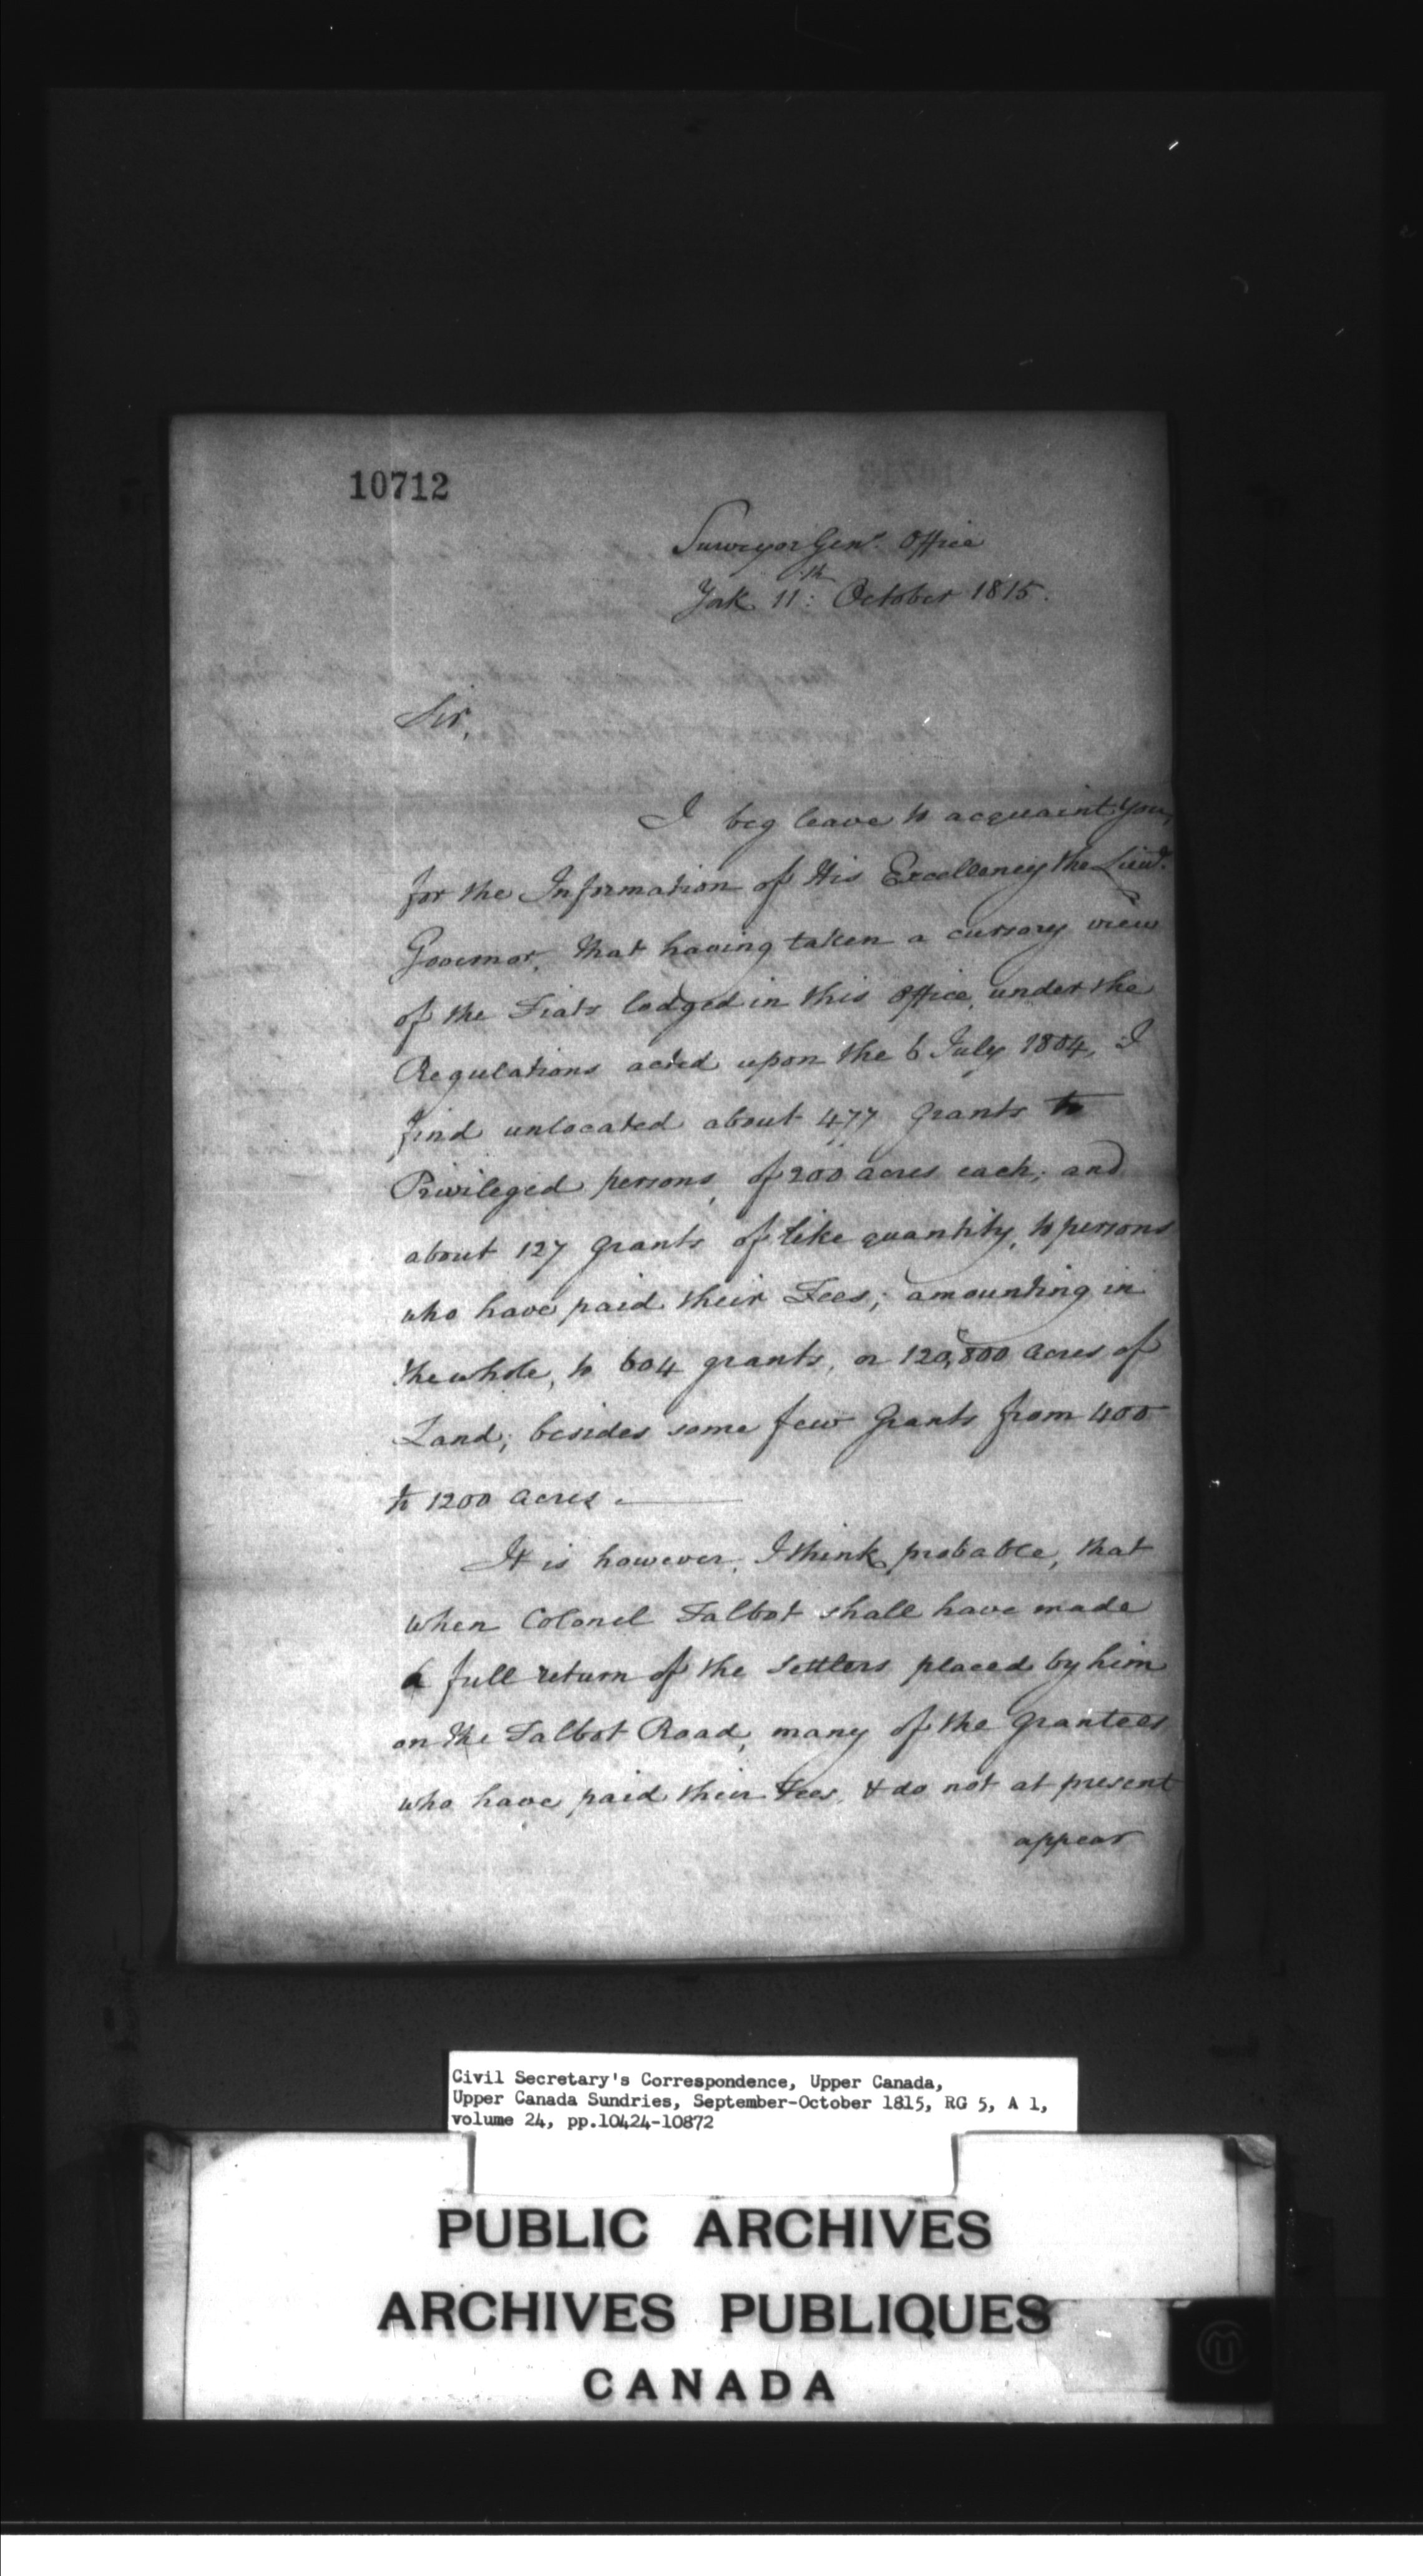 10712
Surveyor Genl. Office
York 11th: October 1815.
Sir,
I beg leave to acquaint You,
for the Information of His Excellency the Lieut.
Governor, that having taken a cursory view
of the Fiats lodged in this Office, under the
Regulations acted upon the 6 July 1804, I
find unlocated about 477 Grants to
Privileged persons, of 200 acres each; and
about 127 Grants of like quantity, to persons
who have paid their Fees; amounting in
the whole, to 604 grants, or 120,800 Acres of
Land; besides some few Grants from 400
to 1200 Acres.
It is however, I think probable, that
when Colonel Talbot shall have made
a full return of the Settlers placed by him
on the Talbot Road, many of the Grantees
who have paid their Fees, & do not at present
appear
Civil Secretary's Correspondence, Upper Canada,
Upper Canada Sundries, September-October 1815, RG 5, A 1,
volume 24, pp.10424-10872
PUBLIC ARCHIVES
ARCHIVES PUBLIQUES
CANADA